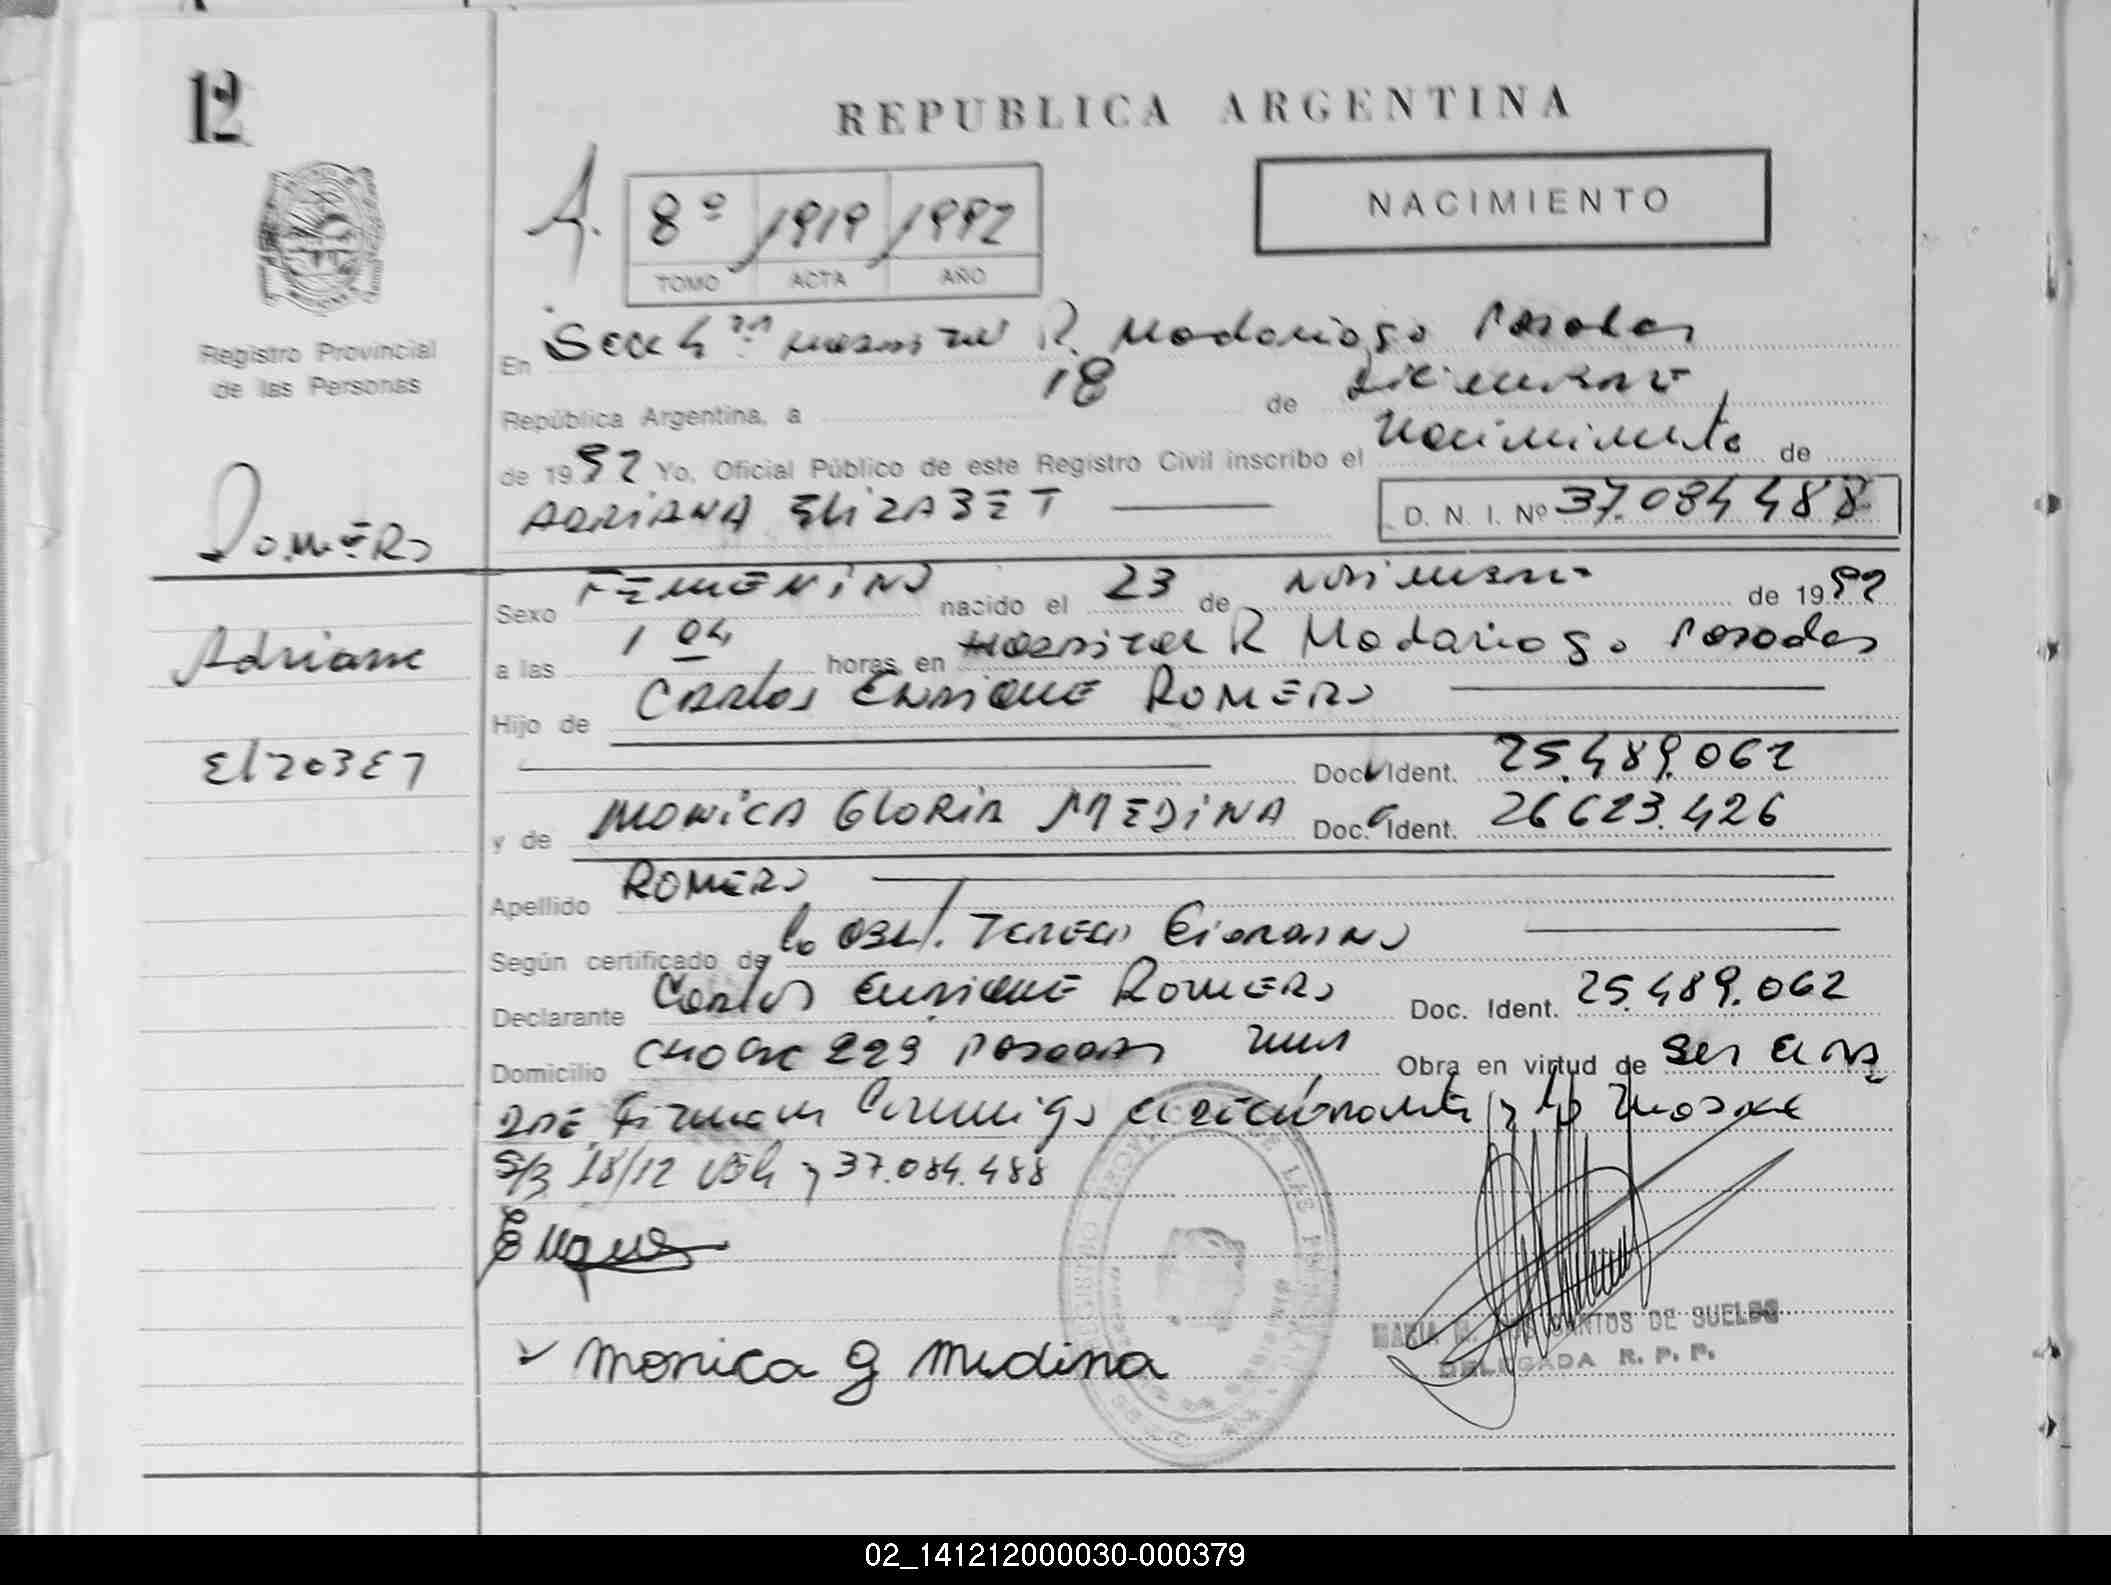 12
REPUBLICA ARGENTINA
A. 8º 1919 1992 NACIMIENTO
TOMO ACTA AÑO
Registro Provincial
de las Personas
En Secc 4ª Hospital R. Madariaga Posadas
República Argentina, a 18 de Diciembre
de 1992 Yo, Oficial Público de este Registro Civil inscribo el Nacimiento de
ADRIANA ELIZABET D. N. I. Nº 37.084488
ROMERO
Adriana
Elizabet
Sexo FEMENINO nacido el 23 de Noviembre de 1992
a las 1 04 horas, en Hospital R Madariaga Posadas
Hijo de Carlos ENRIQUE ROMERO
Doc. Ident. 25.489.062
y de MONICA GLORIA MEDINA Doc. Ident. 26623.426
Apellido ROMERO
Según certificado de la Obst. Teresa
Declarante Carlos Enrique Romero Doc. Ident. 25.489.062
Domicilio 229 Posadas Mnes Obra en virtud de ser el pa
dre Firman Conmigo el declarante y la madre
S/B 18/12 y 37.084.488
Monica G Medina
SANTOS DE SUELDO
DELEGADA R. P. P.
02_141212000030-000379